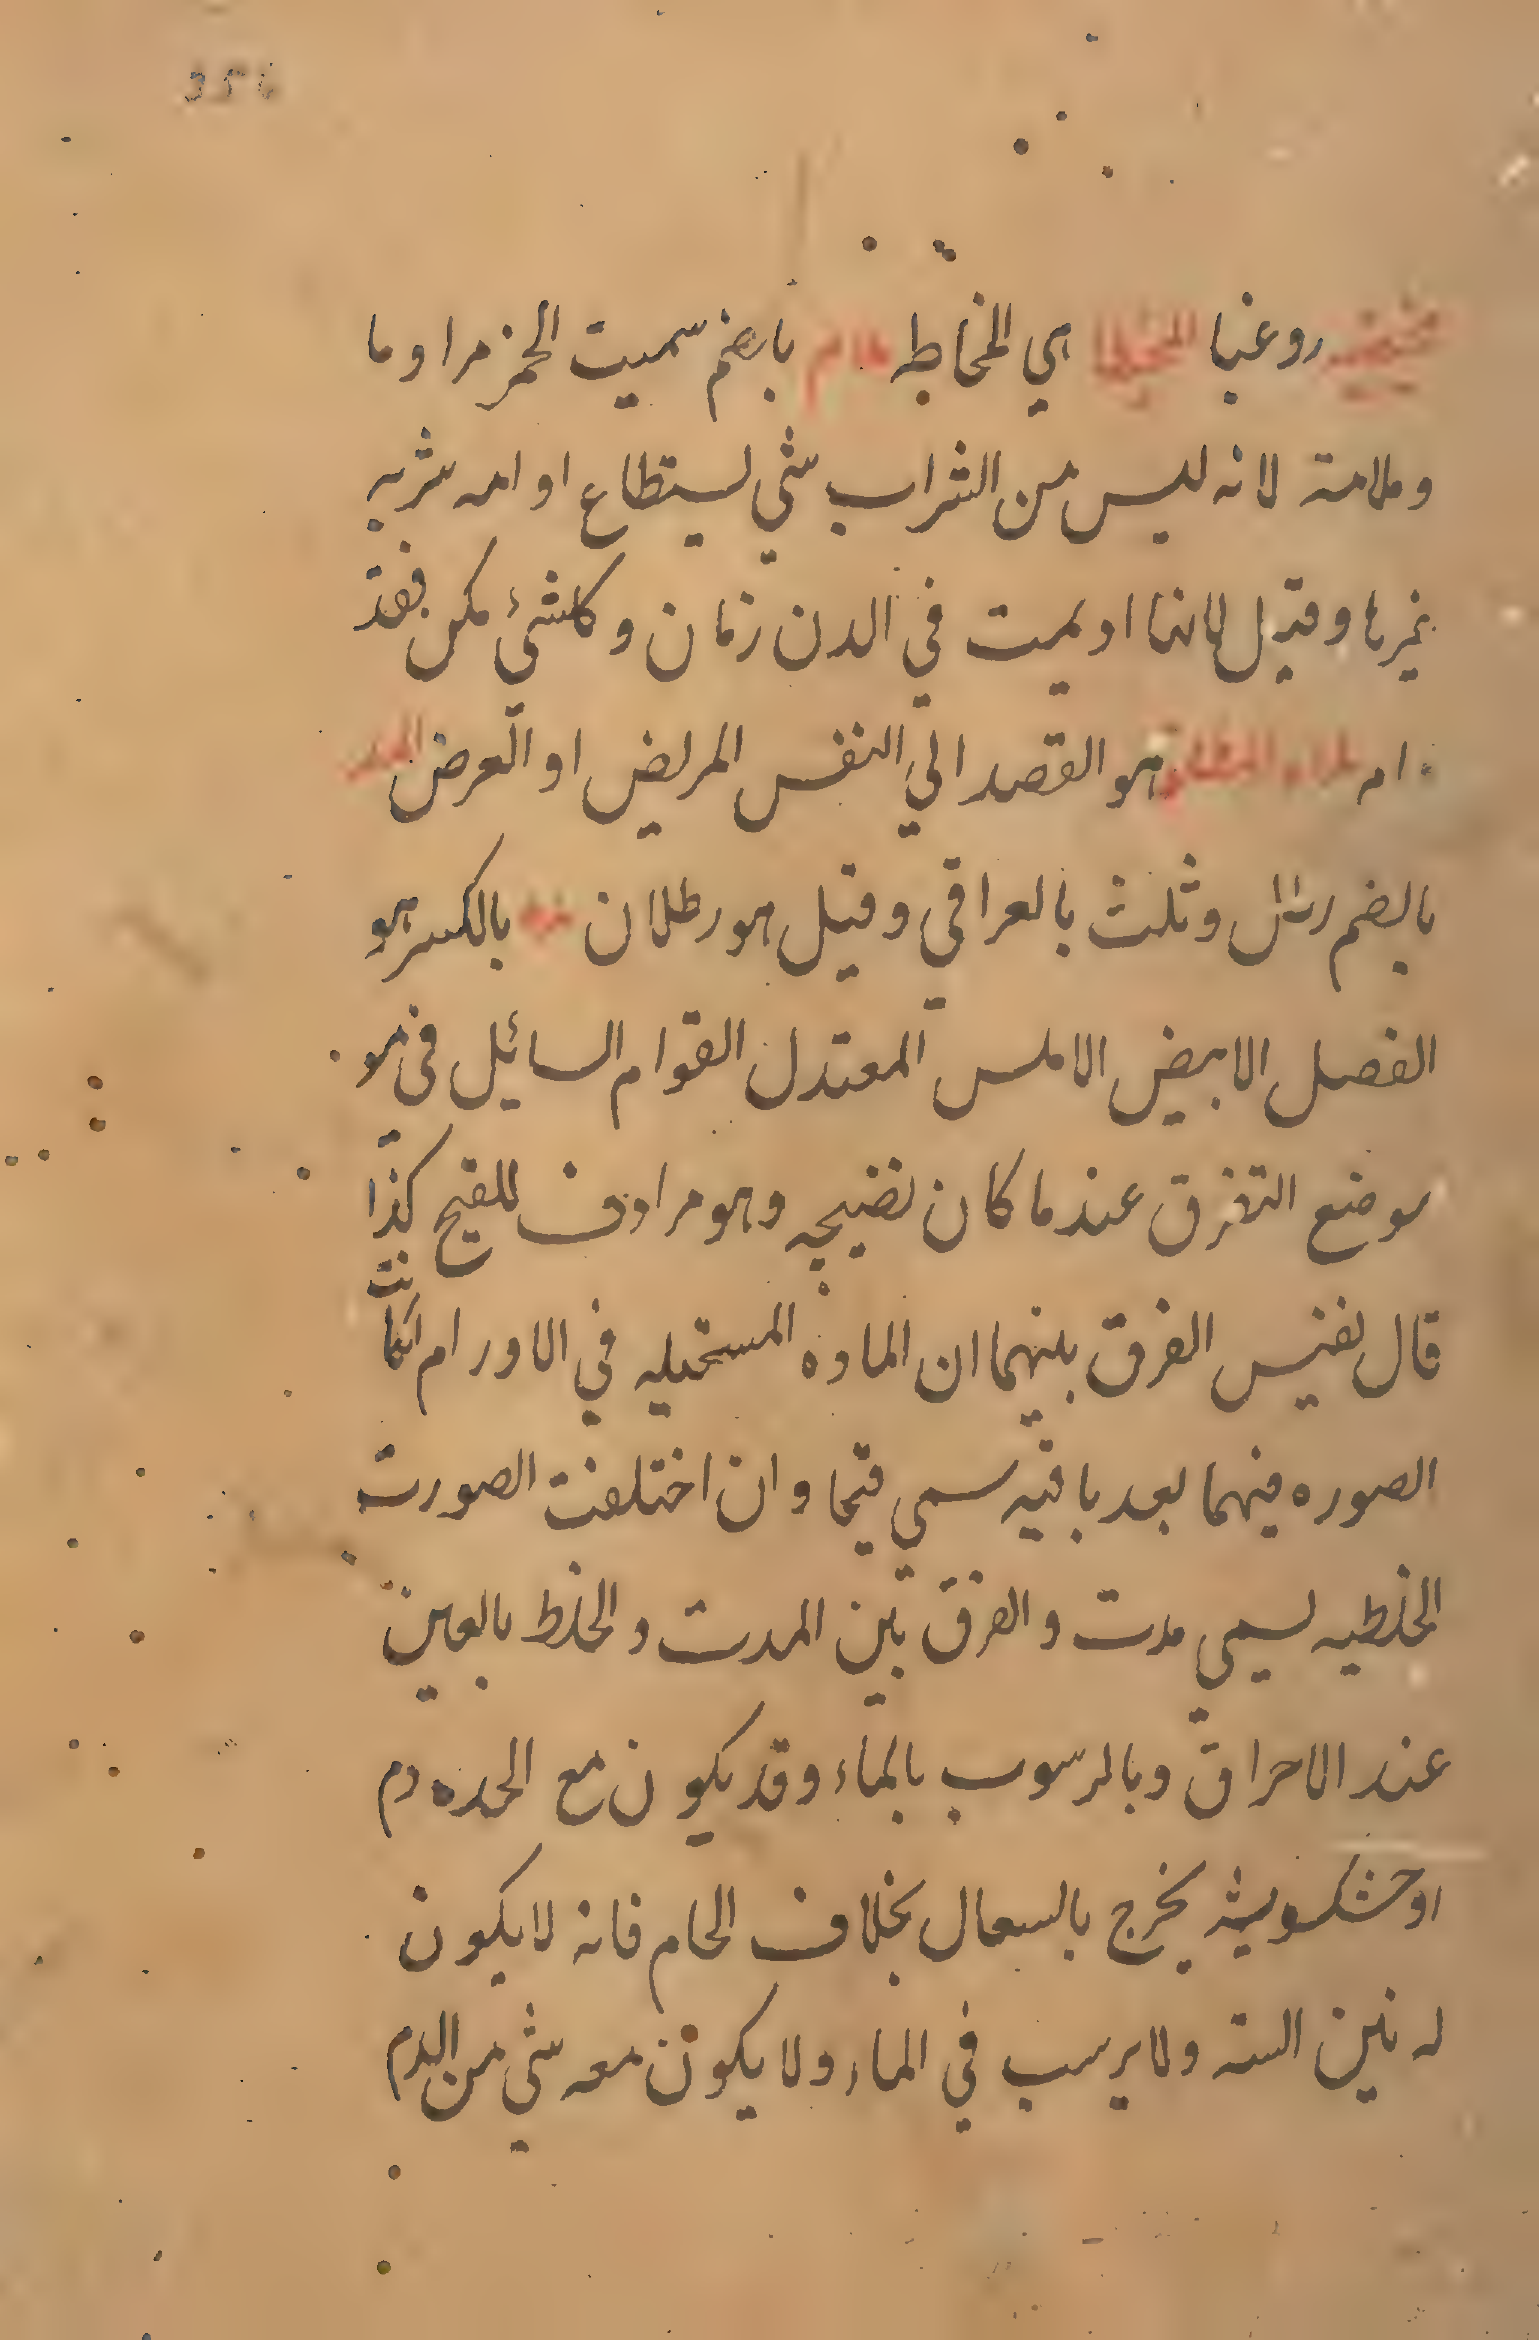 356
روغنيا المخيطا هي المخاطه مدام بالضم سميت الخمر مداوما
وملامة لانه ليس من الشراب شي يستطاع اوامه شربه
غيرها وقيل لانها اديمت في الدن زمان وكلشيء مكن فقد
ام هو القصد الي النفس المريض او العرض المد
بالضم رطل وثلث بالعراقي وقيل هو رطلان مده بالكسر هو
الفصل الابيض الاملس المعتدل القوام السائل في مو
موضع التفرق عند ما كان نضيجه وهو مرادف للقيح كذا
قال نفيس الفرق بينهما ان الماده المستحيله في الاورام انكانت
الصوره فيهما بعد باقيه سمي قيحا وان اختلفت الصورت
الخلطيه يسمي مدت والفرق بين المدت والخلط بالعين
عند الاحراق وبالرسوب بالماء وقد يكون مع المده دم
او خشكريشه يخرج بالسعال بخلاف الخام فانه لا يكون
له نتين البته ولا يرسب في الماء ولا يكون معه شي من الدم